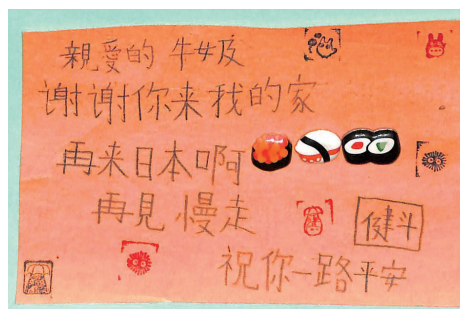 親愛的 牛女及
谢谢你来我的家
再来日本啊
再見 慢走
健斗
祝你一路平安